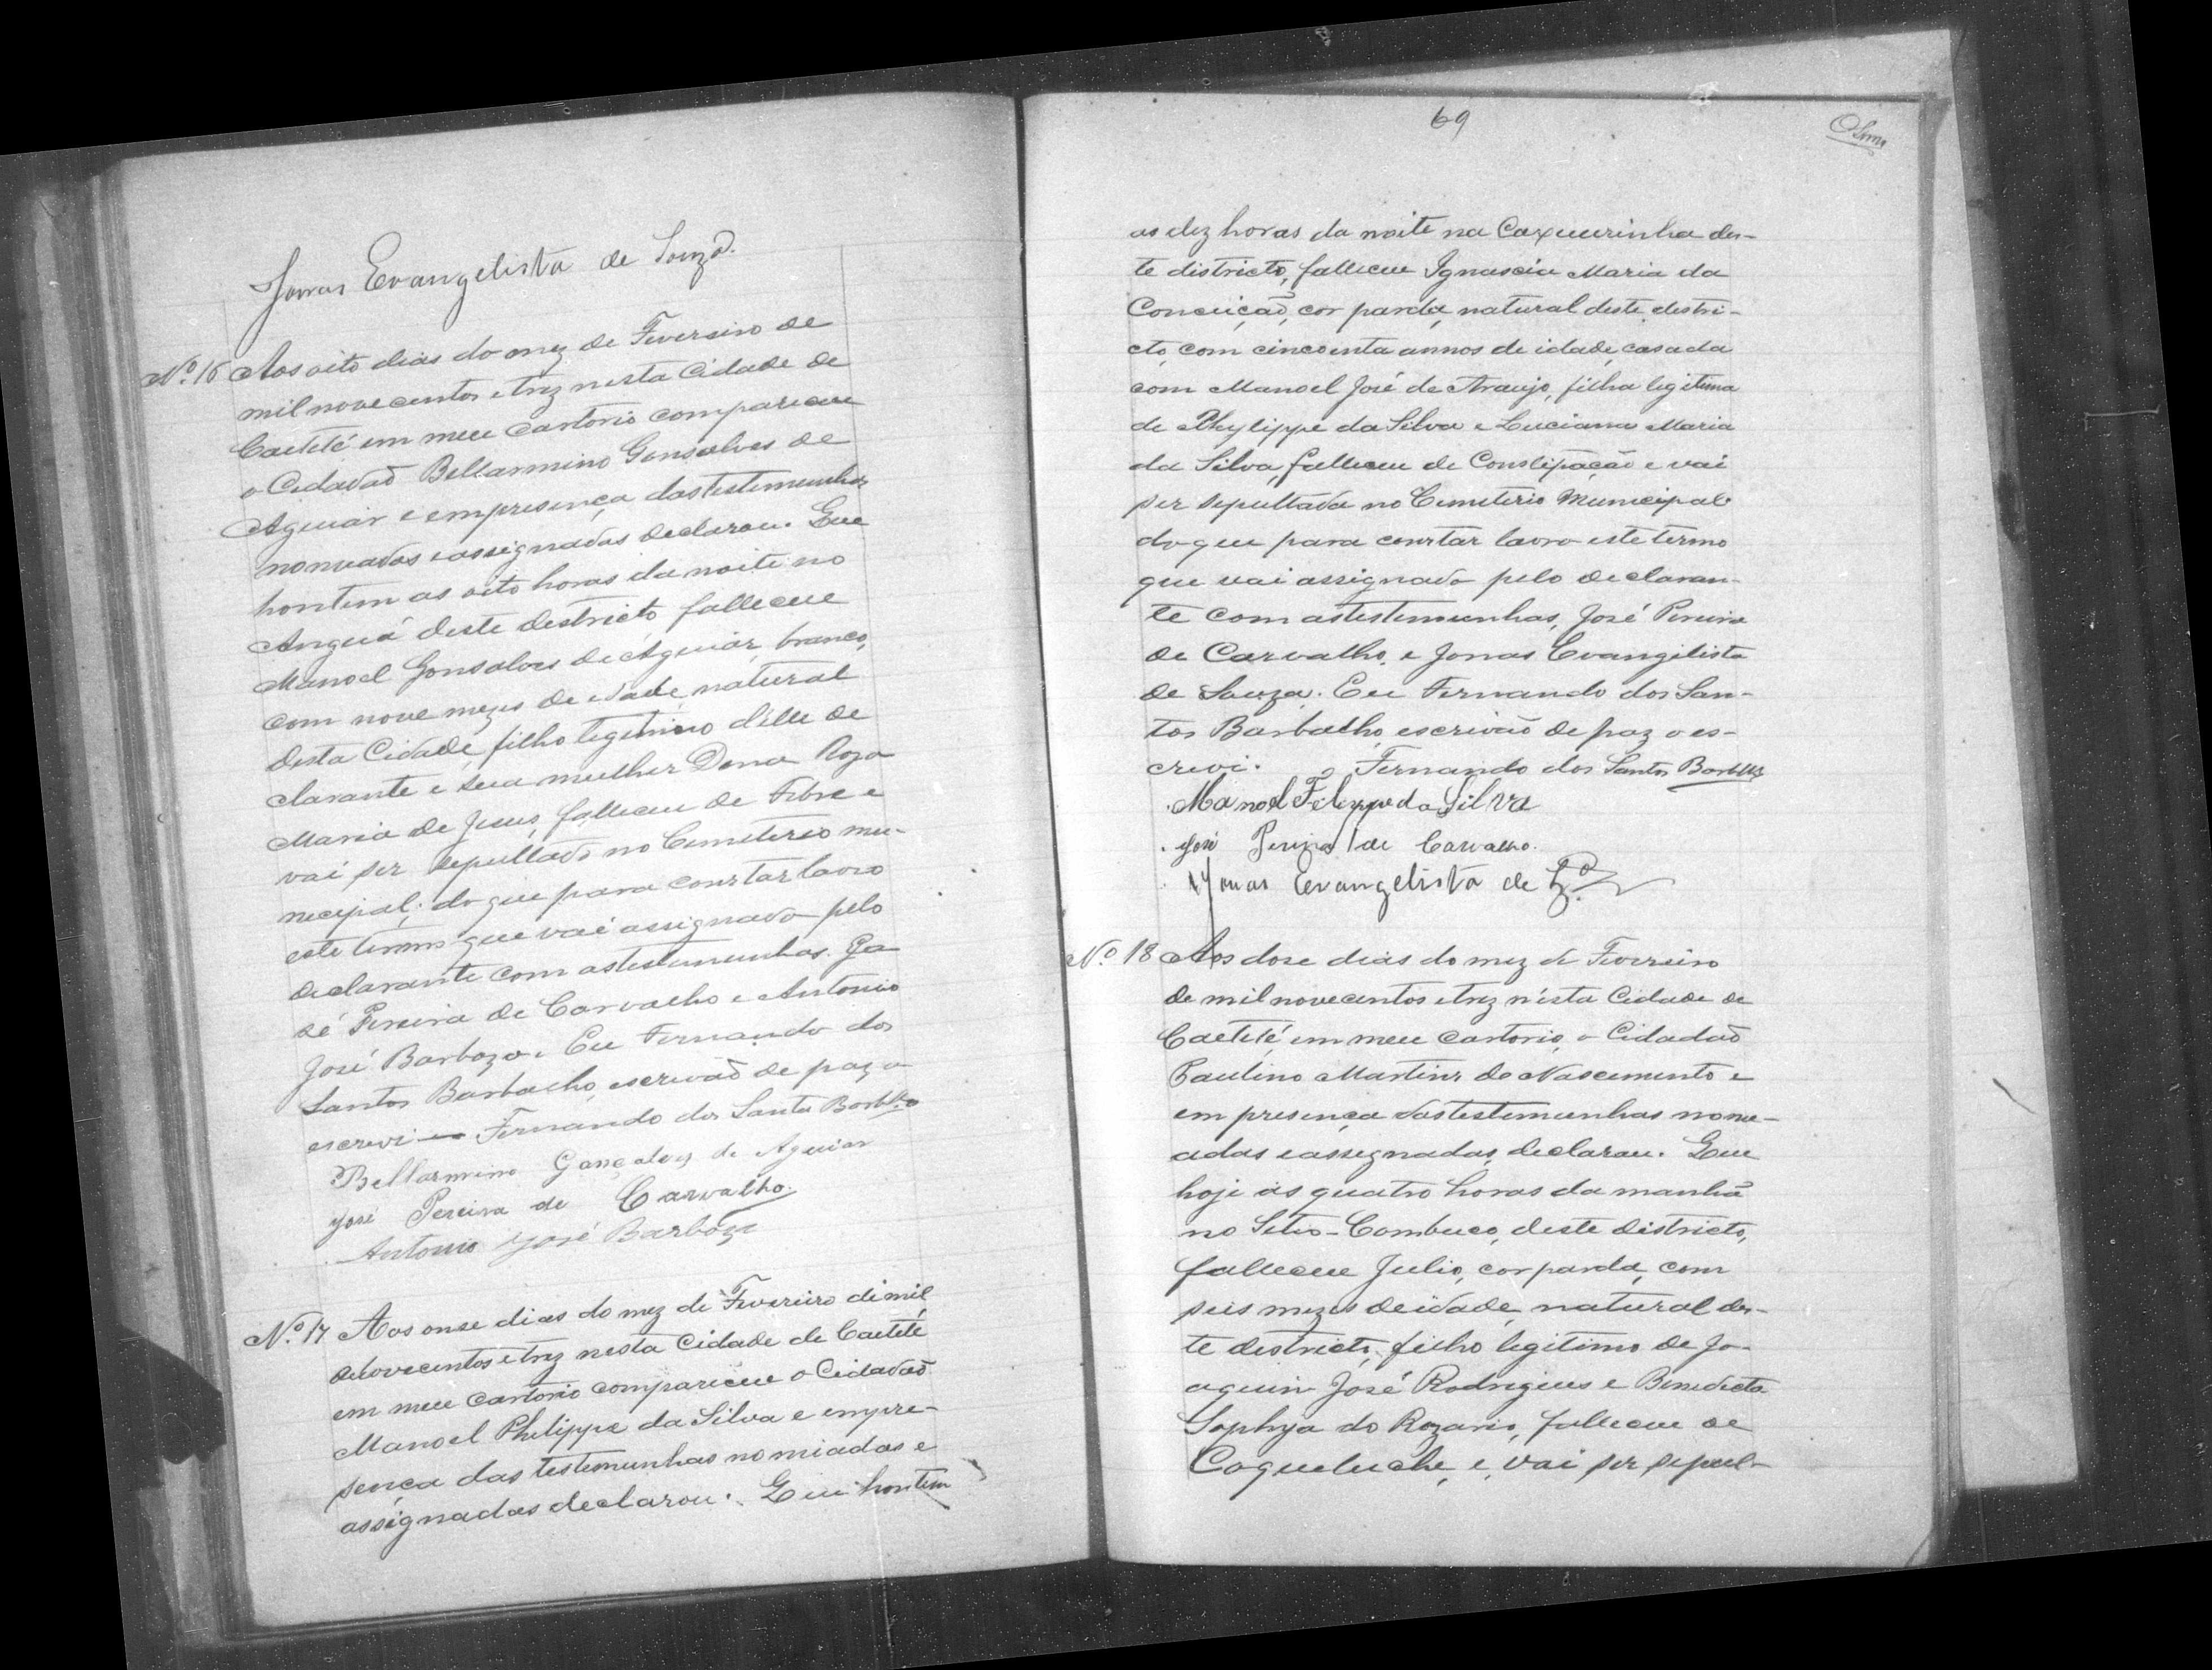 Jonas Evangelista de Souza.
Nº. 16 Aos oito dias do mez de Fevereiro de
mil novecentos e trez nesta Cidade de
Caeteté em meu Cartorio compareceu
o Cidadaõ Bellarmino Gonsalves de
Aguiar e em presença das testemunhas
nomeadas e assignadas declarou. Que
hontem as oito horas da noite no
Anguá deste destricto falleceu
Manoel Gonsalves de Aguiar, branco,
com nove mezes de idade, natural
desta Cidade, filho legitimo d'elle de
clarante e sua mulher Dona Roza
Maria de Jesus, falleceu de Febre e
vai ser sepultado no Cemeterio mu-
necipal; do que para constar lavro
este termo que vai assignado pelo
declarante com as testemunhas. Jo
sé Pereira de Carvalho e Antonio
José Barboza. Eu Fernando dos
Santos Barbalho, escrivaõ de paz o
escrevi — Fernando dos Santos Barblho
Bellarmino Gonçalves de Aguiar
José Pereira de Carvalho.
Antonio José Barboza
Nº. 17 Aos onse dias do mez de Fevereiro de mil
novecentos e trez nesta Cidade de Caeteté
em meu cartorio compareceu o Cidadaõ
Manoel Philippe da Silva e em pre-
sença das testemunhas nomiadas e
assignadas declarou. Que hontem
69
as dez horas da noite na Caxueirinha des-
te districto, falleceu Ignascia Maria da
Conceiçaõ, cor parda, natural deste destri-
cto, com cincoenta annos de idade, casada
com Manoel José de Araujo, filha legitima
de Phylippe da Silva e Luciana Maria
da Silva, falleceu de Constipaçaõ e vai
ser sepultada no Cemeterio Municipal
do que para constar lavro este termo
que vai assignado pelo declaran-
te com as testemunhas, José Pereira
de Carvalho, e Jonas Evangelista
de Souza. Eu Fernando dos San-
tos Barbalho, escrivaõ de paz o es-
crevi. Fernando dos Santos Barblho
Manoel Felippe da Silva
José Pereira de Carvalho.
Jonas Evangelista de
Nº. 18 Aos dose dias do mez de Fevereiro
de mil novecentos e trez n'esta Cidade de
Caeteté em meu Cartorio, o Cidadaõ
Paulino Martins do Nascemento e
em presença das testemunhas nome-
adas e assegnadas, declarou. Que
hoje as quatro horas da manhã
no Setio-Combuco, deste districto,
falleceu Julio, cor parda, com
seis mezes de idade, natural des-
te destricto, filho legitimo de Jo-
aquin José Rodrigues e Benedicta
Sophya do Rozario, falleceu de
Coqueluche, e, vai ser sepul-